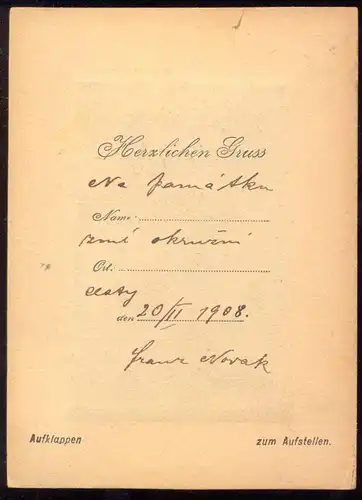 Herzlichen Gruss
Na památku
Name:
zmé okružní
Ort:
cesty
den 20/II 1908.
Franz Novak
Aufklappen zum Aufstellen.